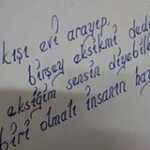 kışı evi arayıp,
birşey eksikmi dedi
eksiğim sensin diyebile
biri olmalı insanın ha